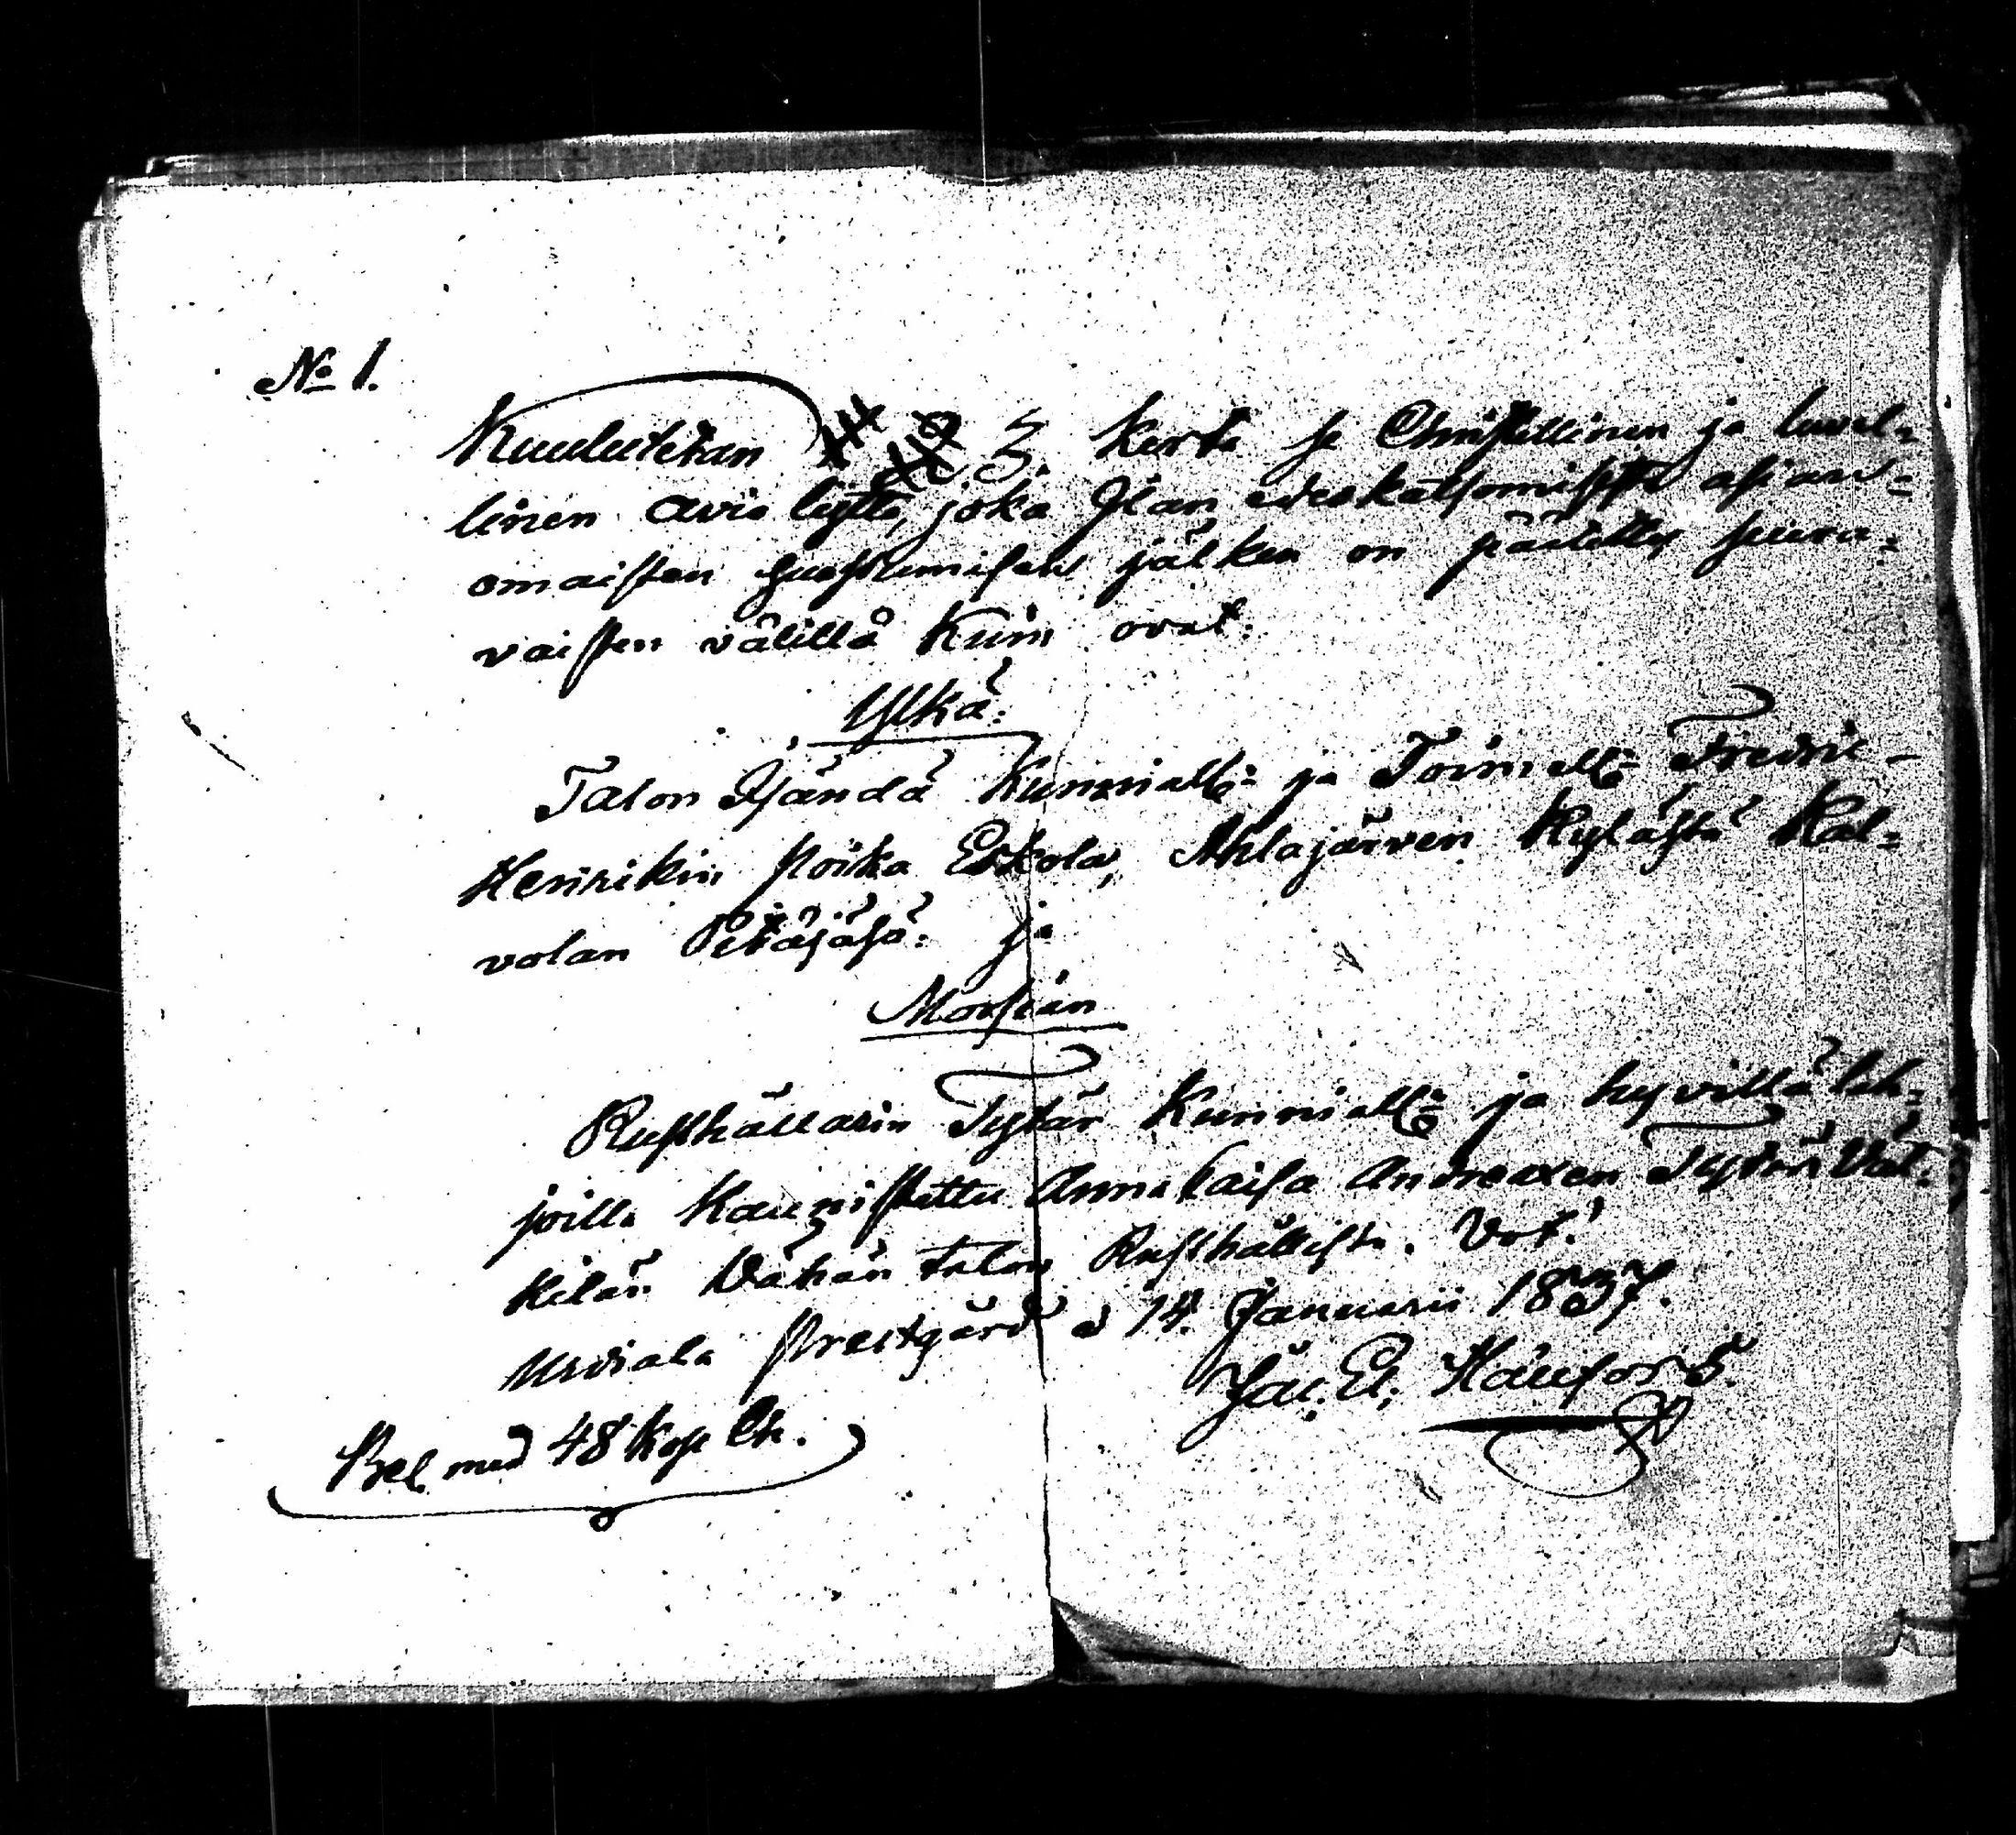 No 1.
Kuulutetan 1 2 3. Kerta se Christillinen ja luwal=
linen avio liitto, joka Jlan edeskatsomisesta asian=
omaisten suostumisen jälken on päätetty seura=
vaisten välillä Kuin ovat:
Ylkä:
Talon Jsändä Kunniallin: ja Toimellin: Fredric
Henrikin poika Eskola, Ahlajärven Kylästä Kal=
volan Pitäjäsä: ja
Morsian
Rusthållarin Tytär Kunniallin: ja hyvillä lah=
joilla Kaunistettu Anna Caisa Andreaxen Tytär Väl=
kilän Vähän talon Rusthållista. Vot!
Urdiala Prestgård d 14. Januarii 1837.
Jac. El. Häuffors.
Bel. med 48 Kop Ch.